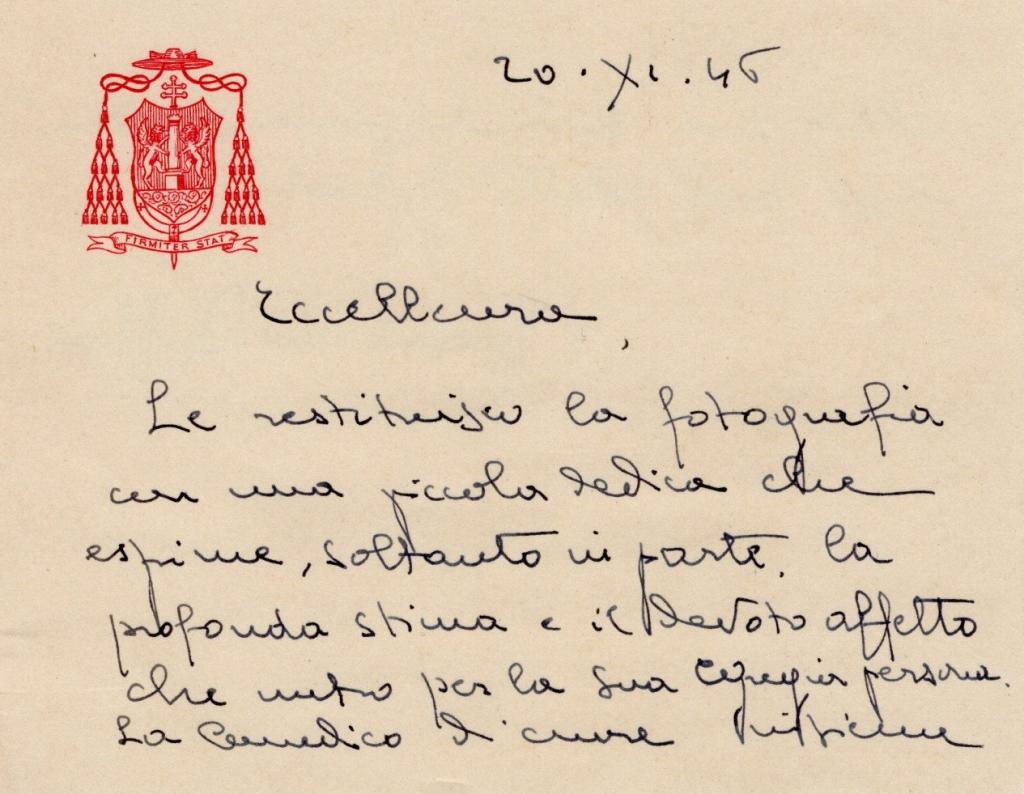 20.XI.46
FIRMITER STAT
Eccellenza,
Le restituisco la fotografia
con una piccola dedica che
esprime, soltanto in parte, la
profonda stima e il devoto affetto
che nutro per la Sua egregia persona.
La benedico di cuore insieme